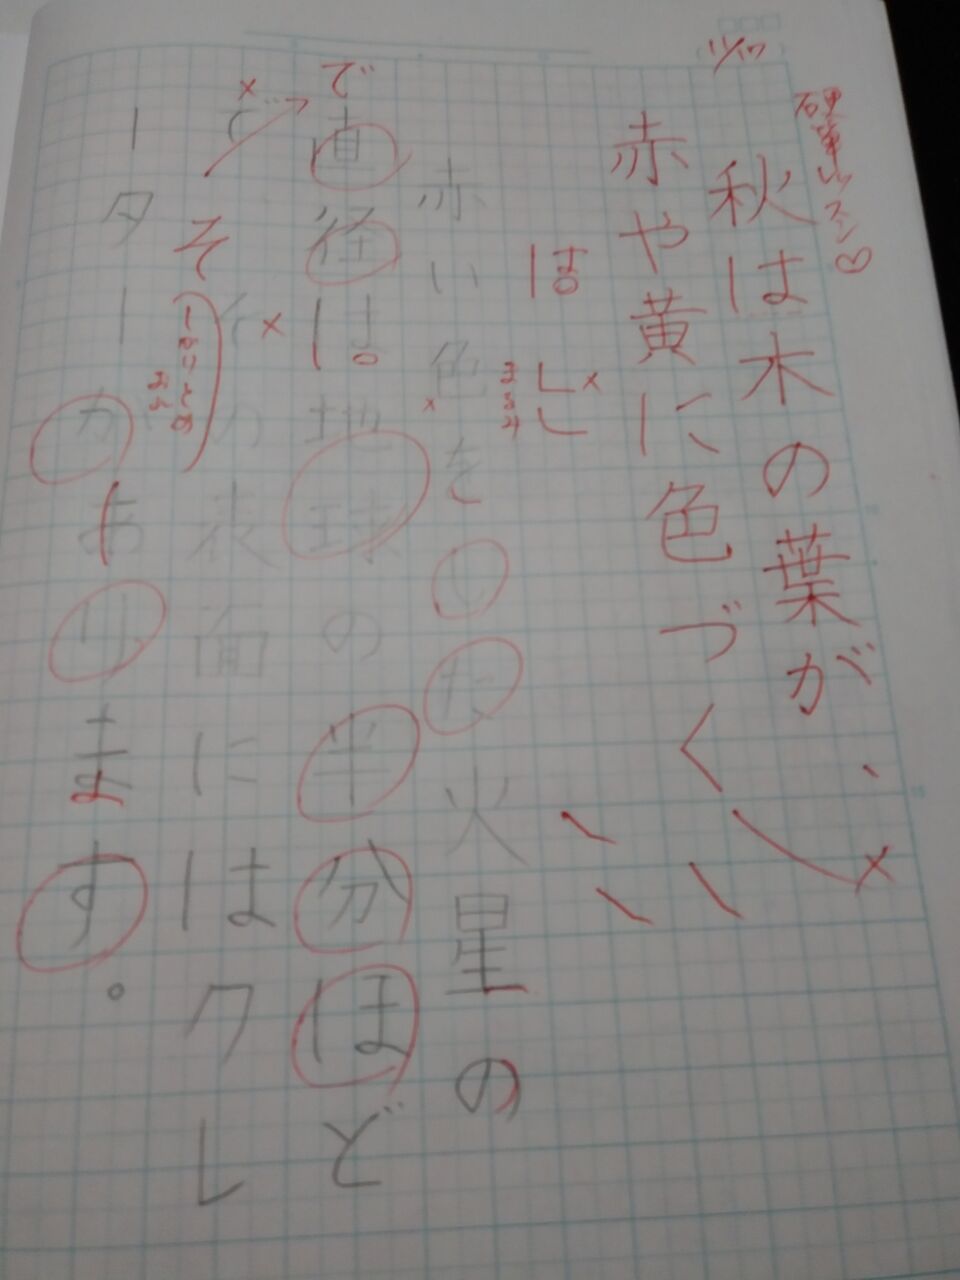 11/17
硬筆レッスン♡
秋は木の葉が、
赤や黄に色づく
ほ
赤い色をした火星の
直径は地球の半分ほど
で
で、その表面にはクレ
そ
ーターがあります。